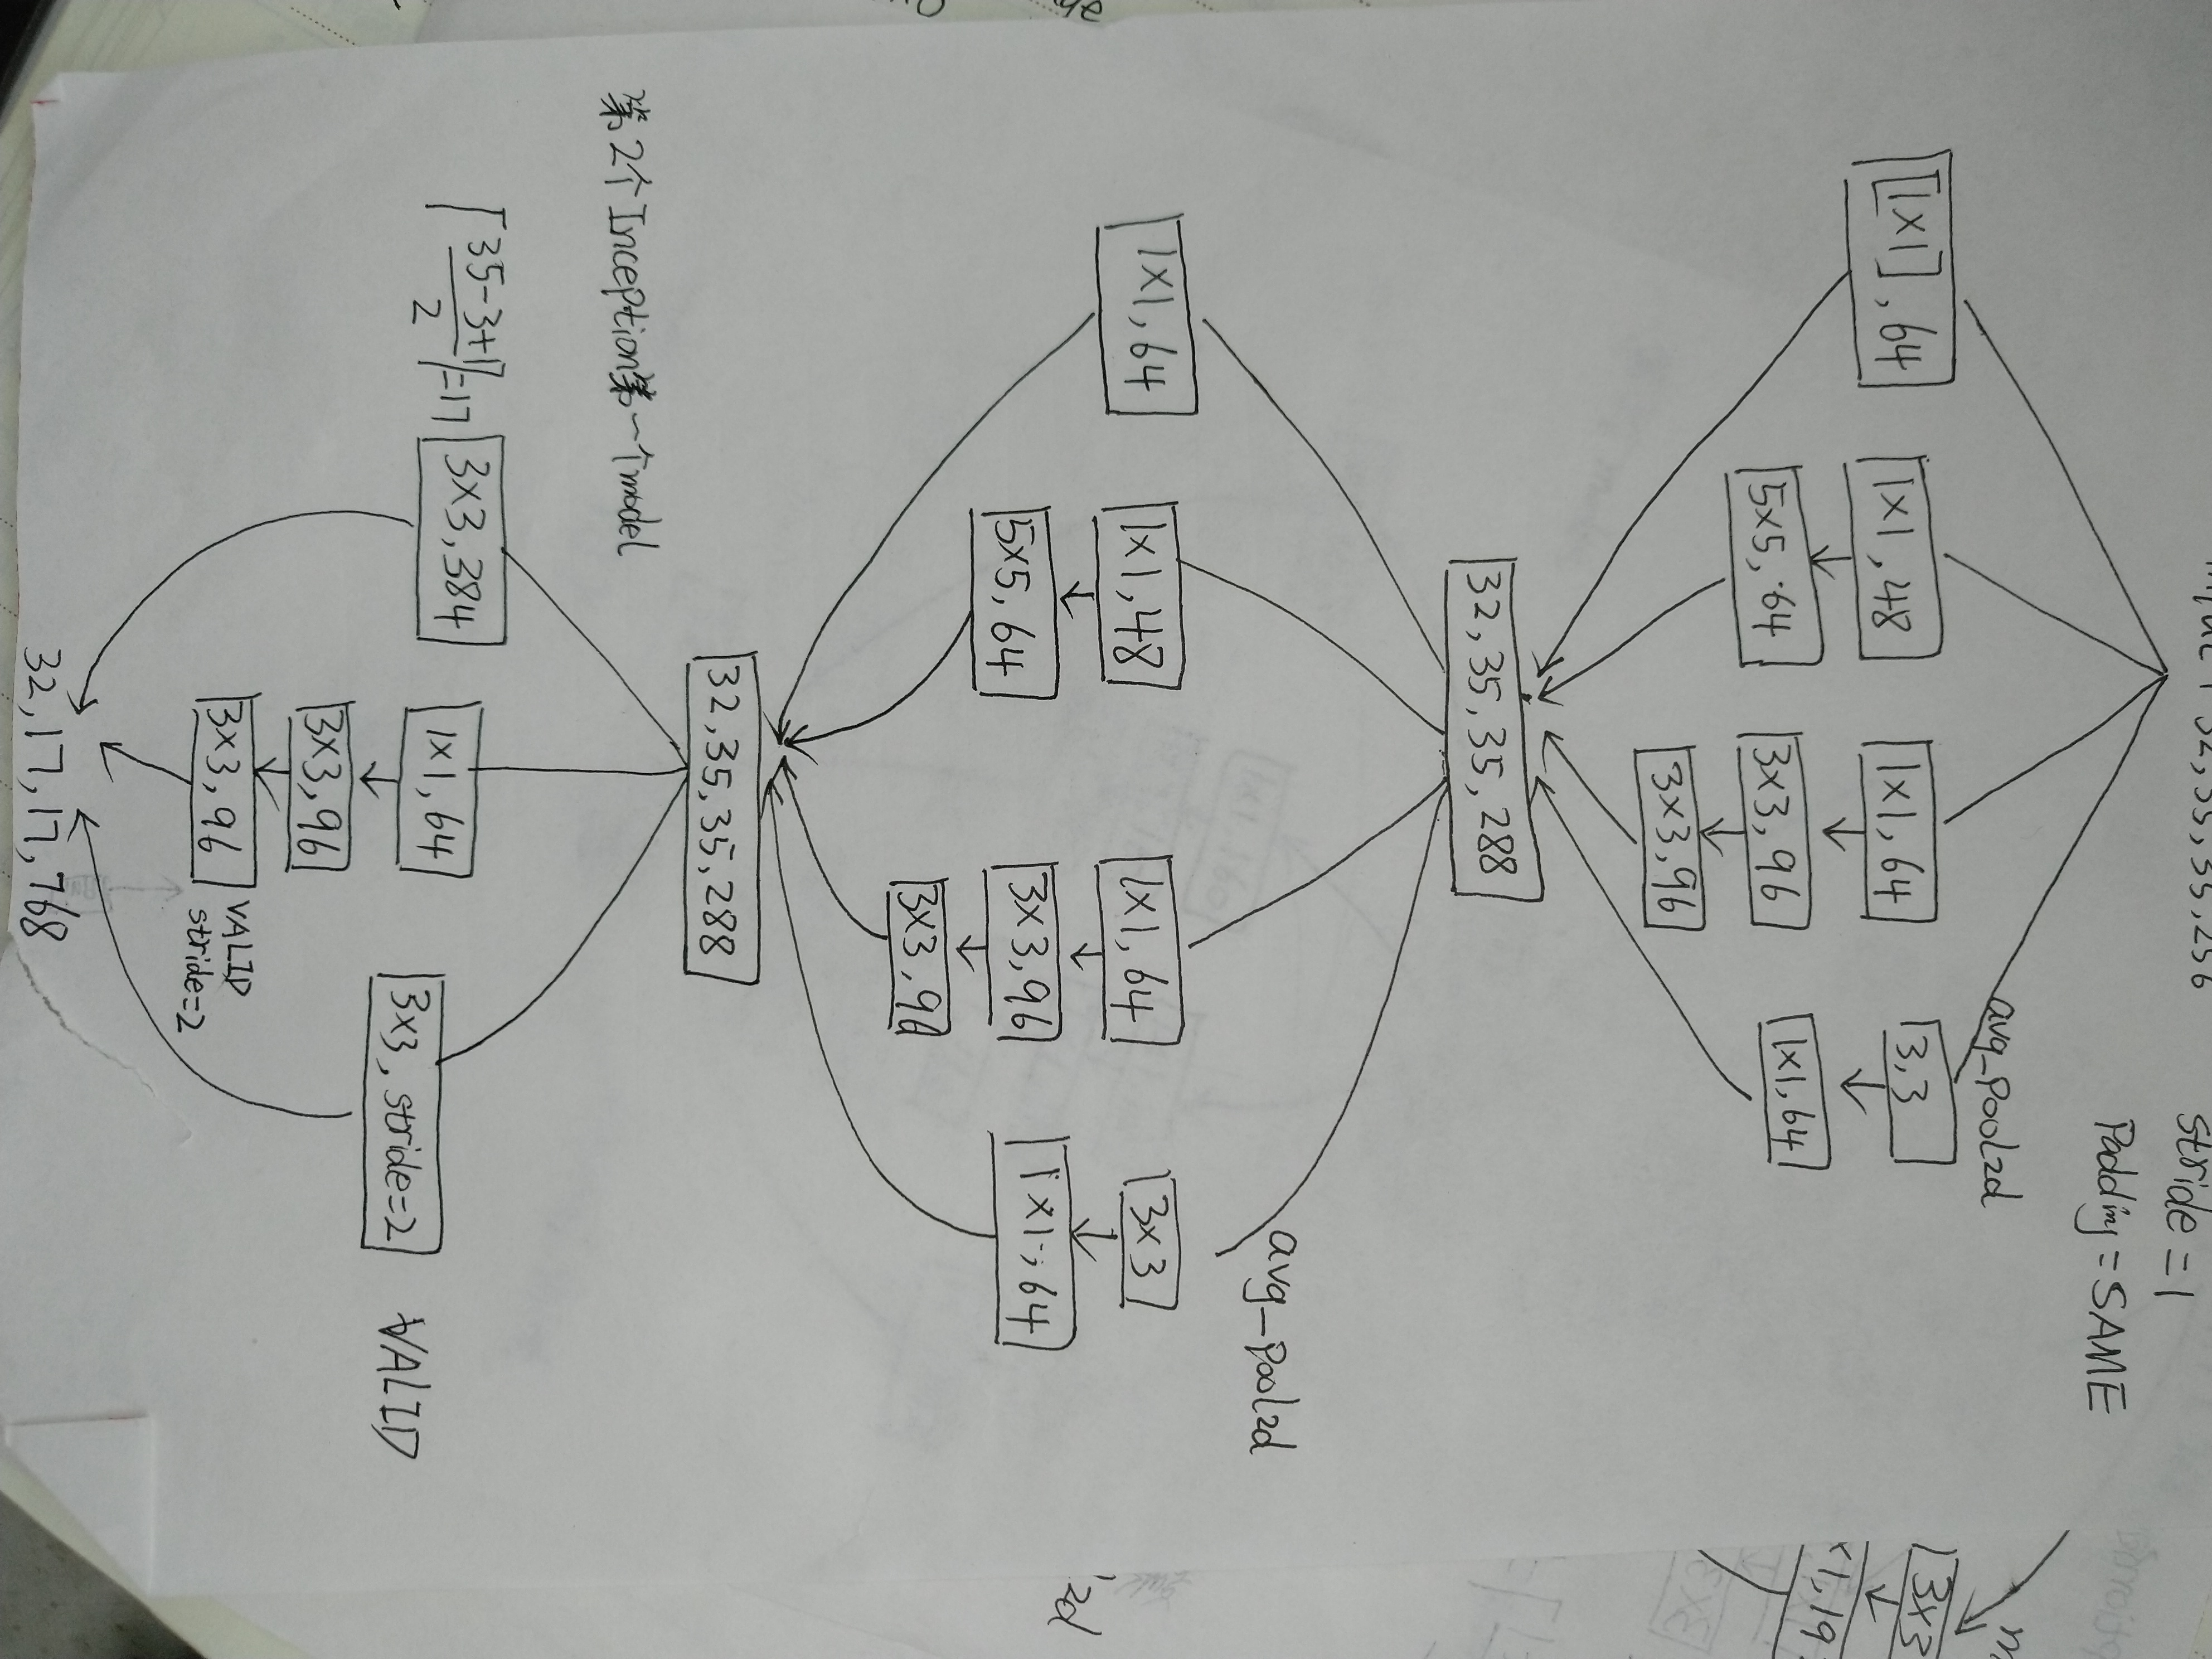 32,35,35,256
stride=1
Padding=SAME
avg_pool2d
[1x1],64
1x1,48
1x1,64
3,3
5x5,64
3x3,96
1x1,64
3x3,96
32,35,35,288
avg_pool2d
1x1,64
1x1,48
1x1,64
3x3
5x5,64
3x3,96
1x1,64
3x3,96
32,35,35,288
第2个Inception第一个model
35-3+1
2
=17
3x3,384
1x1,64
3x3,stride=2
VALID
3x3,96
3x3,96
VALID
stride=2
32,17,17,768
3x3
2d